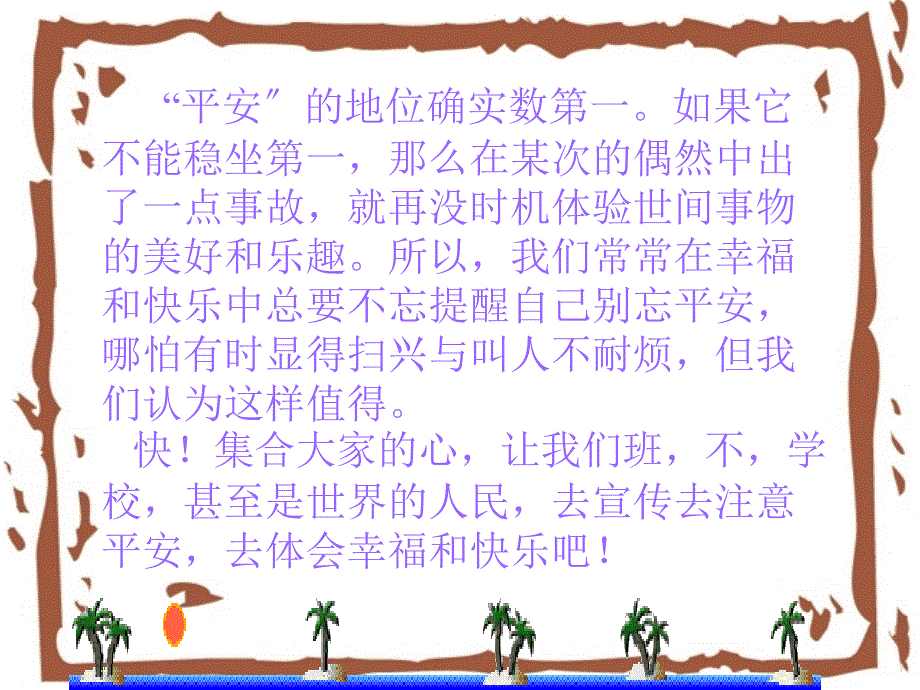 “平安〞的地位确实数第一。如果它
不能稳坐第一，那么在某次的偶然中出
了一点事故，就再没时机体验世间事物
的美好和乐趣。所以，我们常常在幸福
和快乐中总要不忘提醒自己别忘平安，
哪怕有时显得扫兴与叫人不耐烦，但我
们认为这样值得。
快！集合大家的心，让我们班，不，学
校，甚至是世界的人民，去宣传去注意
平安，去体会幸福和快乐吧！